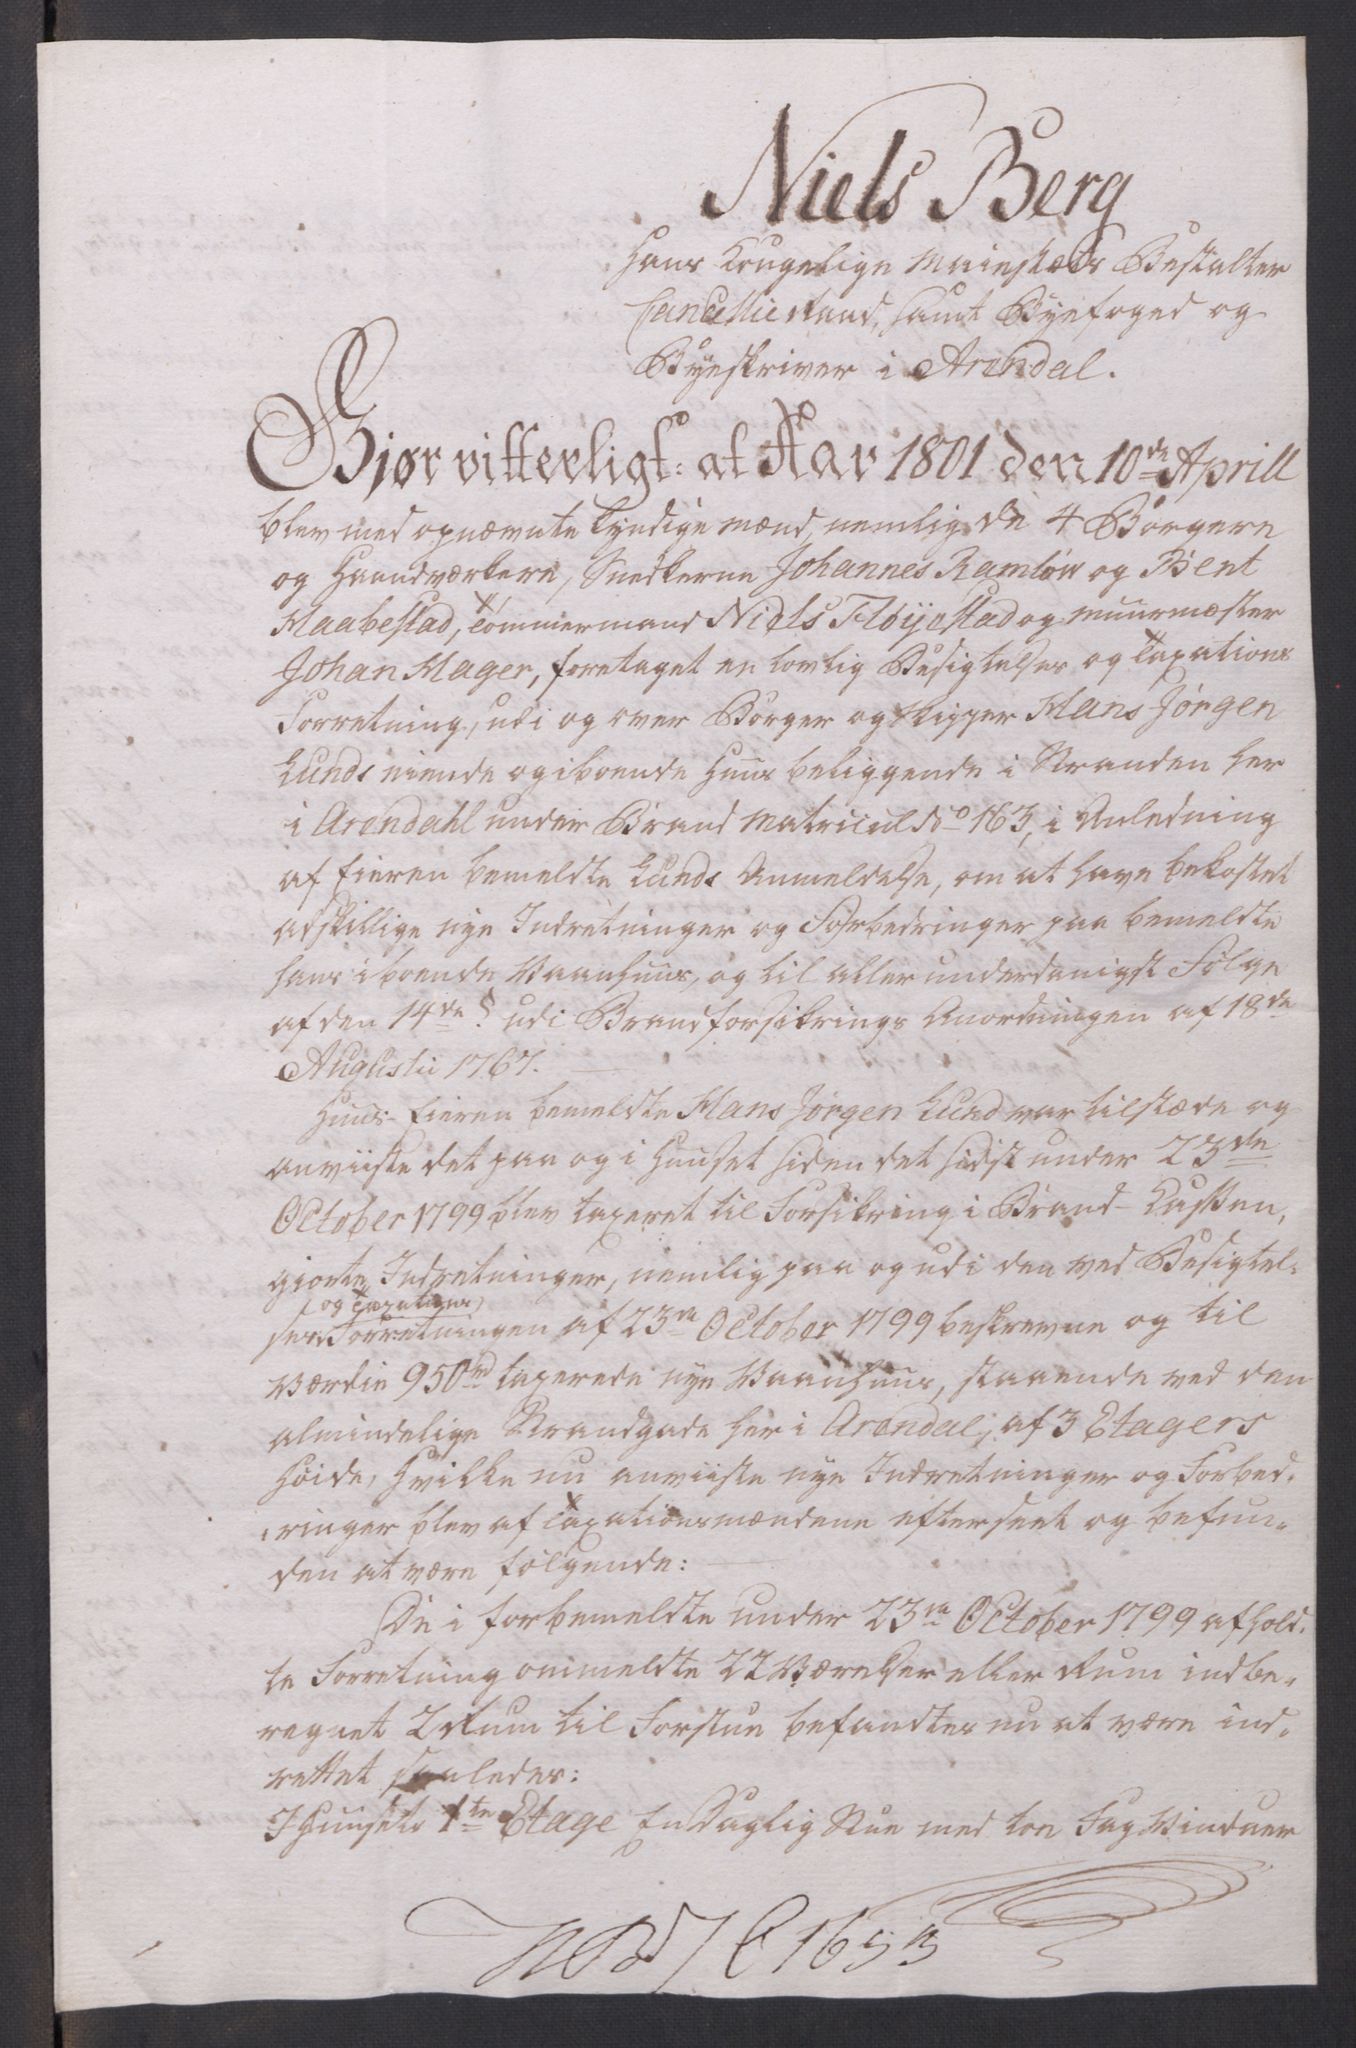 Niels Berg
Hans Kongelige Maiestæts Bestalter
Cancellieraad, samt Byefoged og
Byeskriver i Arendal.
Giør vitterligt: at Aar 1801 den 10de Aprill
blev med opnævnte kyndige mænd, nemlig de 4 Borgere
og Haandværkere, Snedkerne Johannes Ramlöw og Bent
Haabestad, Tömmermand Niels Flöijestad og muurmester
Johan Hager, foretaget en lovlig Besigtelses og Taxations
Forretning, udi og over Borger og Skipper Hans Jörgen
Lunds eiende og iboende Huus beliggende i Stranden her
i Arendahl under Brand Matricul No 163, i Anledning
af Eieren bemeldte Lunds Anmeldelse, om at have bekostet
adskillige nye Indretninger og Forbedringer paa bemeldte
hans iboende Vaanhuus, og til allerunderdanigst Fölge
af den 14de § udi Brandforsikrings Anordningen af 18de
Augustii 1767.
Huus-Eieren bemeldte Hans Jörgen Lund var tilstæde og
anviiste det paa og i Huuset siden det sidst under 23de
October 1799 blev taxeret til Forsikring i Brand-Cassen,
giorte Indretninger, nemlig paa og udi den ved Besigtel-
(og Taxations)
ses Forretningen af 23de October 1799 beskrevne og til
Værdie 950rd taxerede nye Vaanhuus, staaende ved den
almindelige Strandgade her i Arendal, af 3 Etagers
Höide, Hvilke nu anviiste nye Indretninger og Forbed-
ringer blev af Taxationsmændene efterseet og befun-
den at være fölgende:
De i forbemeldte under 23de October 1799 afhold-
te Forretning ommeldte 22 Værelser eller Rum indbe-
regnet 2 Rum til Forstue befandtes nu at være ind-
rettet saaledes:
I Huusets 1te Etage En Daglig Stue med toe Fag Vinduer